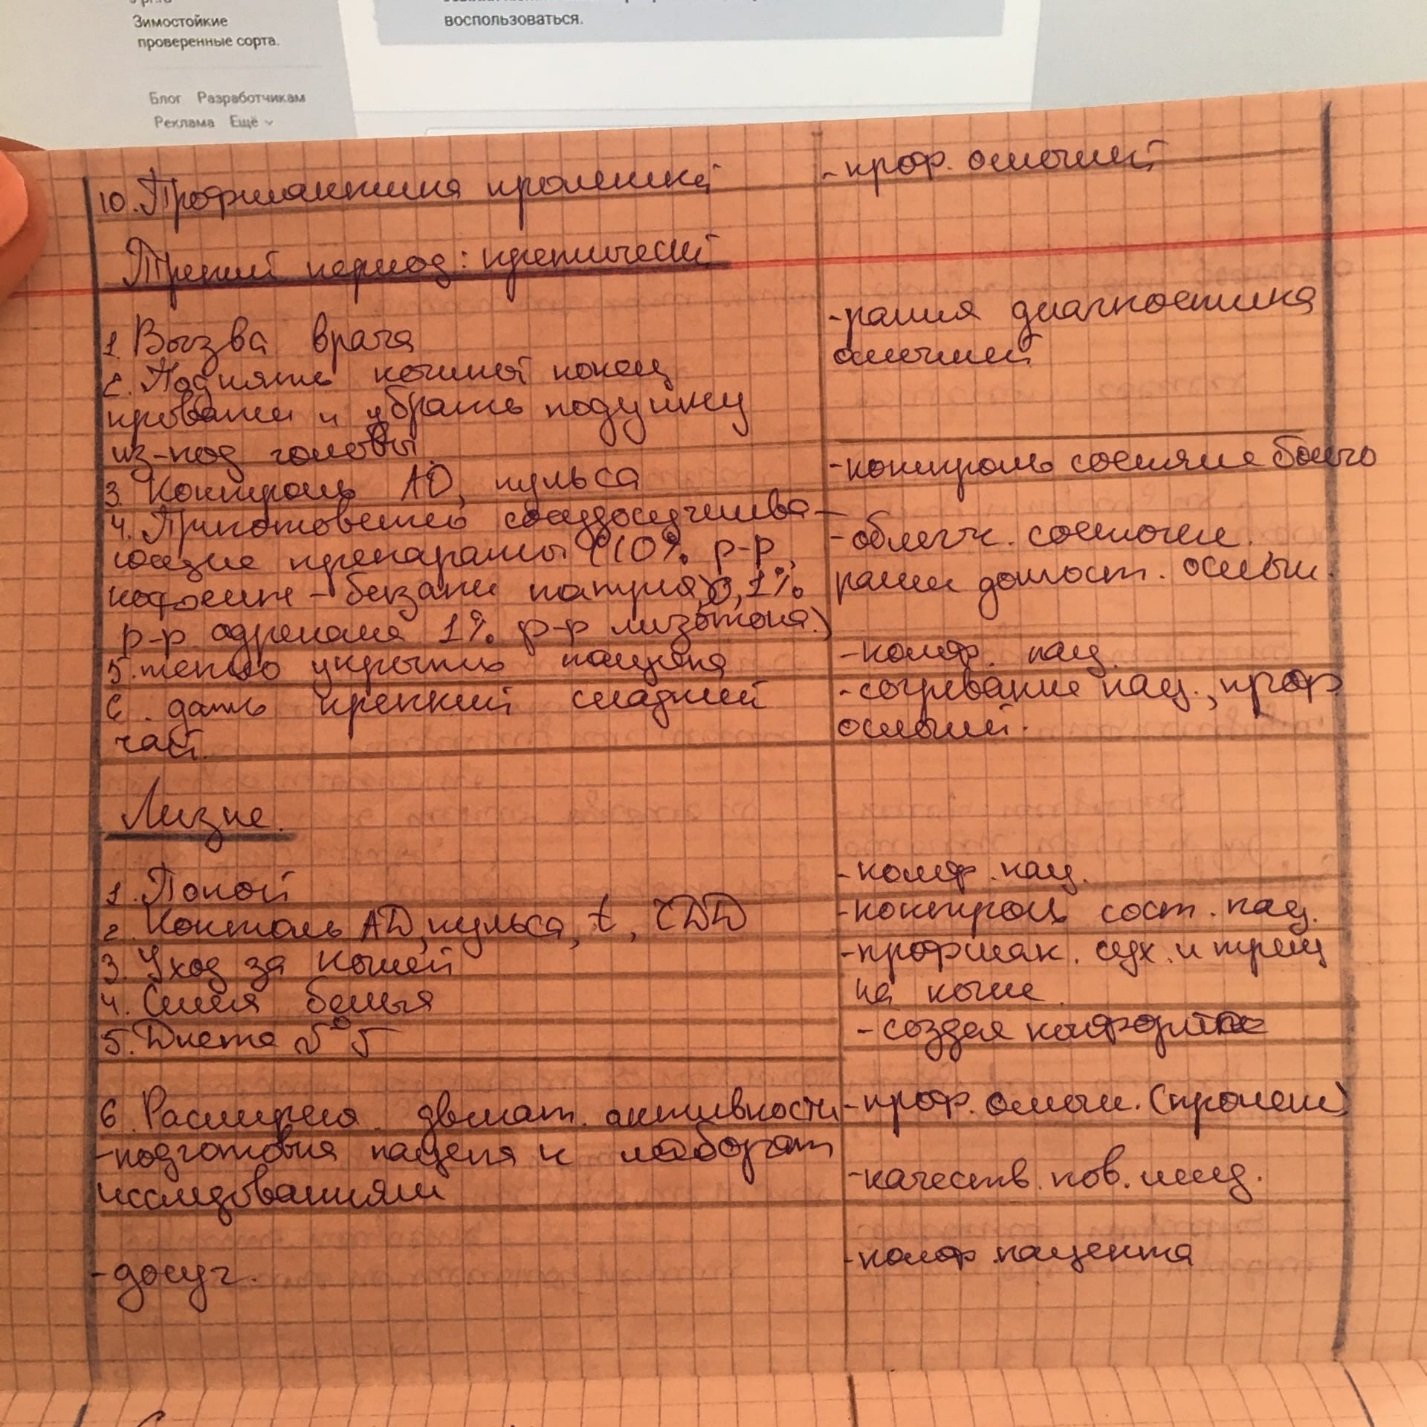 Зимостойкие
проверенные сорта.
воспользоваться.
Блог Разработчикам
Реклама Ещё
10. Профилактика пролежней
- проф. ослож­ний
Третий период: критический
1. Вызва врача
- рання диагностика
ослжнний
2. Поднять ножной конец
кровати и убрать подушку
из-под головы.
3. Контроль АД, пульса
- контроль состяние больго
4. Приготовелнеь сосудосужива-
ющие препараты (10% р-р,
кофеин - бензоат натрия, 0,1%
р-р адренална 1% р-р мезатона.)
- облегч. состочен.
5. тепло укрыть пацента
- комф. пац.
6. дать крепкий сладкий
чай.
- согревание пац., проф
ослжний.
Лизис.
1. Покой
- комф. пац.
2. Контоль АД, пульса, t, ЧДД
- контроль сост. пац.
3. Уход за кожей
- профлак. сух. и трещ
на коже.
4. Смена белья
- создея комфорта
5. Диета №5
6. Расширея двигат. активности
- проф. ослжн. (пролеж)
- подготовка пацента к лаборат
исследованиям
- качеств. пов. мед.
- досуг.
- комф. пацента